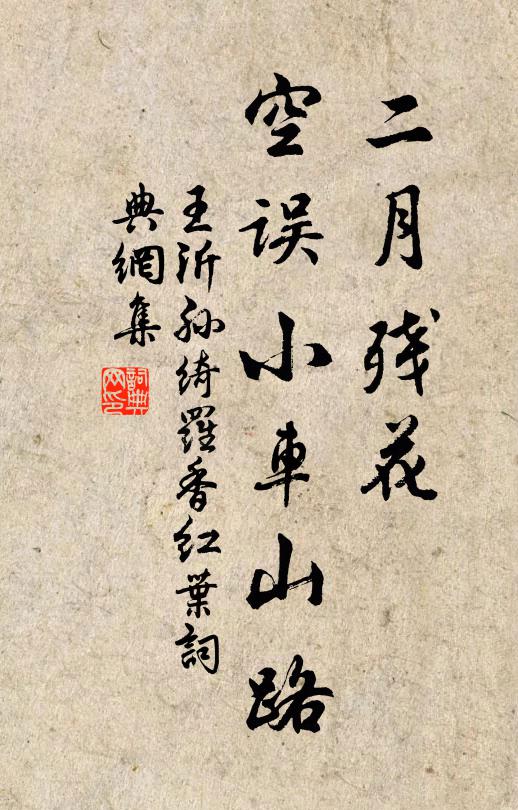 二月残花
空误小車山路
王沂孙綺羅香红葉詞
典網集
詞典
网印